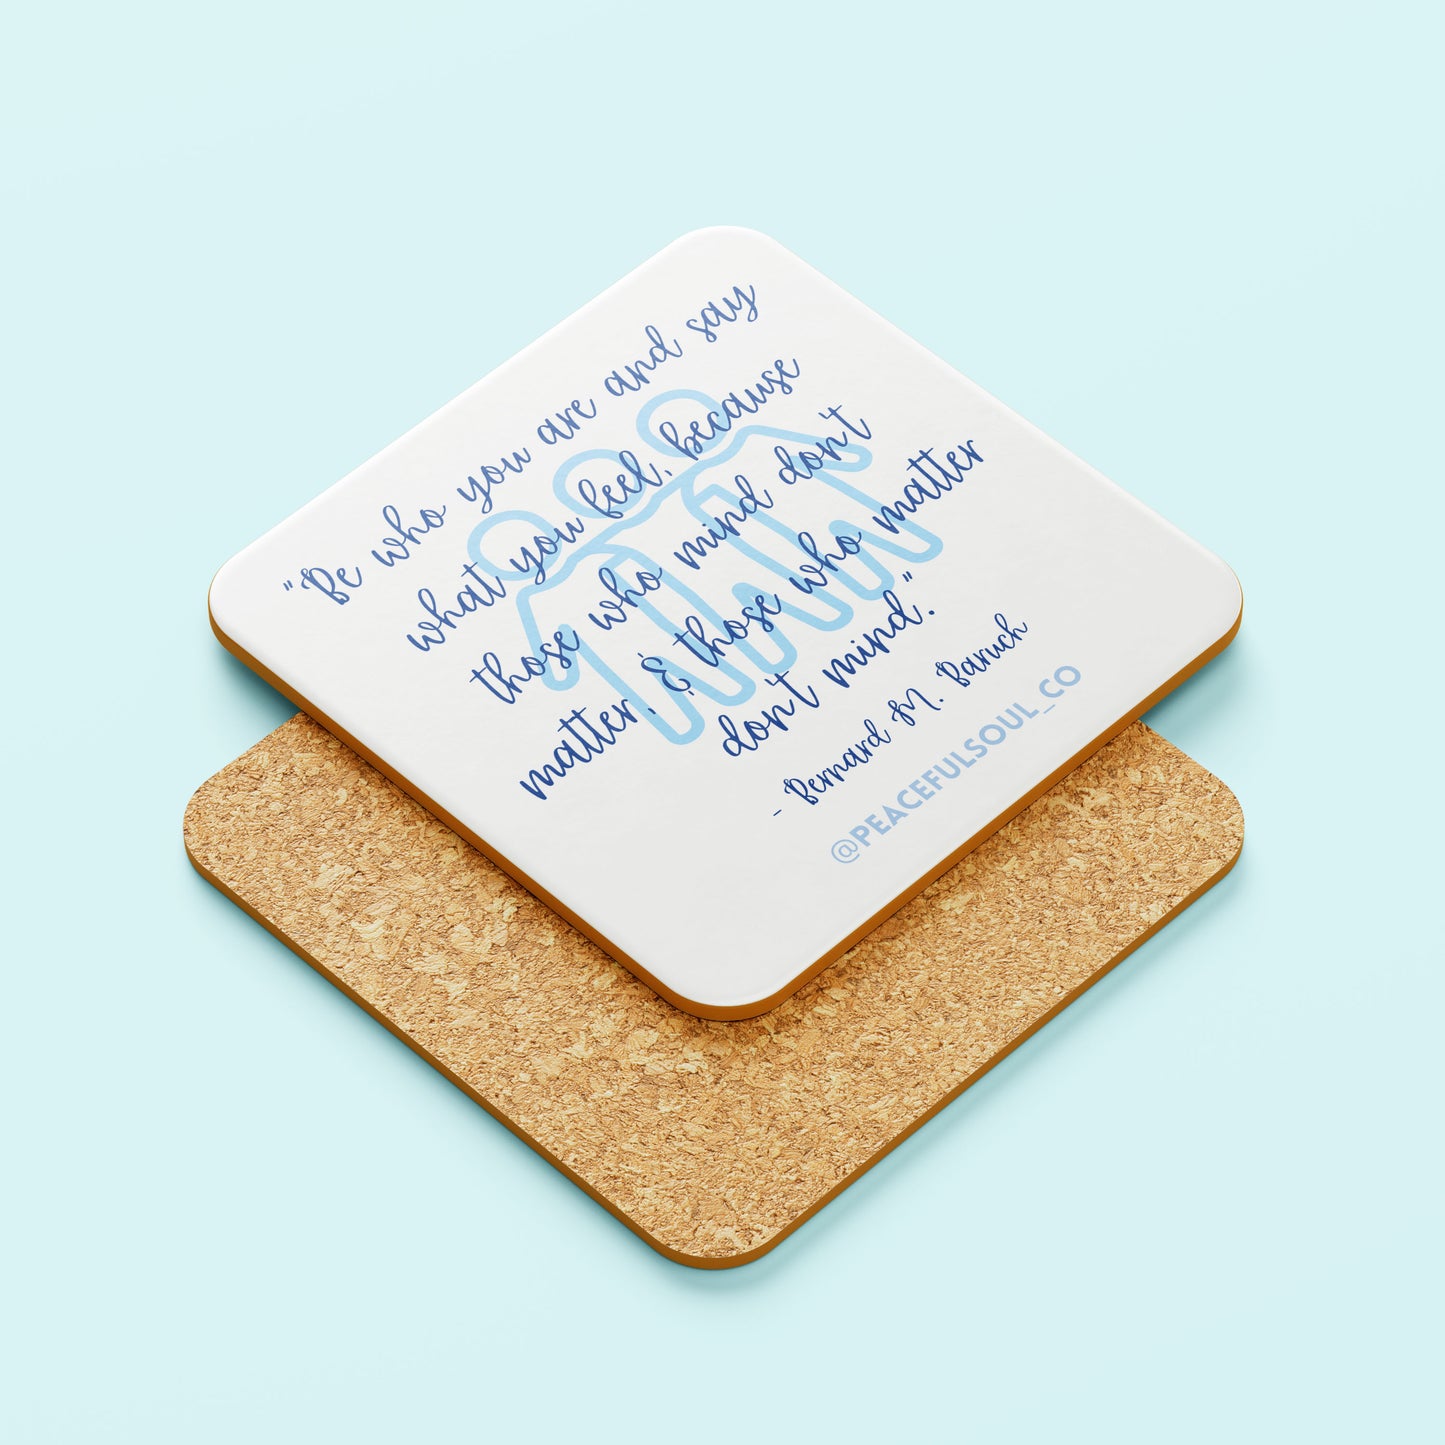 "Be who you are and say
what you feel, because
those who mind don't
matter, & those who matter
don't mind."
- Bernard M. Baruch
@PEACEFULSOUL_CO